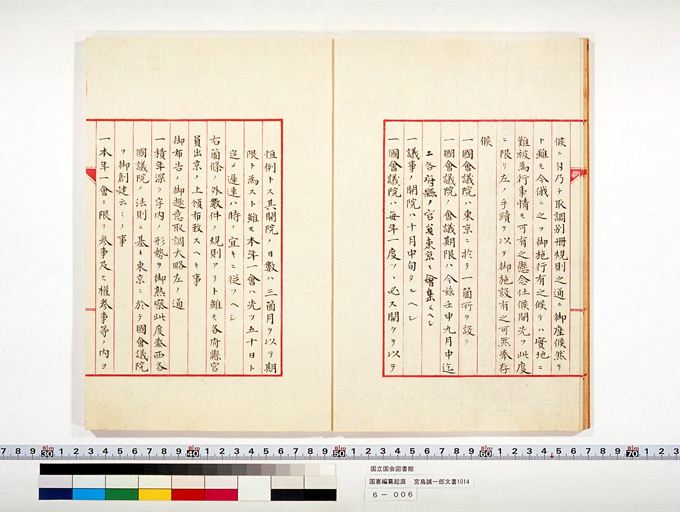 候ニ付乃チ取調別冊規則之通ニ御座候然リ
ト雖モ今俄ニ之ヲ御施行有之候テハ實地ニ
難被為行事情モ可有之懸念仕候間先ツ此度
ニ限リ左ノ手續ヲ以テ御施設有之可然奉存
候
一國會議院ハ東京ニ於テ一箇所ヲ設ク
一國會議院ノ會議期限ハ今茲壬申九月中迄
ニ各府縣ノ官員東京ニ會集スヘシ
一議事ノ開院ハ十月中旬タルヘシ
一國會議院ハ毎年一度ツヽ必ス開クヲ以テ
恒例トス其開院ノ日數ハ三箇月ヲ以テ期
限ト為スト雖モ本年一會ハ先ツ五十日ト
定メ遲速ハ時ノ宜キニ從フヘシ
右箇條ノ外數件ノ規則アリト雖モ各府縣官
員出京ノ上頒布致スヘキ事
御布告ノ御趣意取調大略左ノ通
一積年深ク宇内ノ形勢ヲ御熟察此度泰西各
國議院ノ法則ニ基キ東京ニ於テ國會議院
ヲ御創建云々ノ事
一本年一會ニ限リ參事及ヒ權參事等ノ内ヨ
国立国会図書館
国憲編纂起源 宮島誠一郎文書1014
6－006